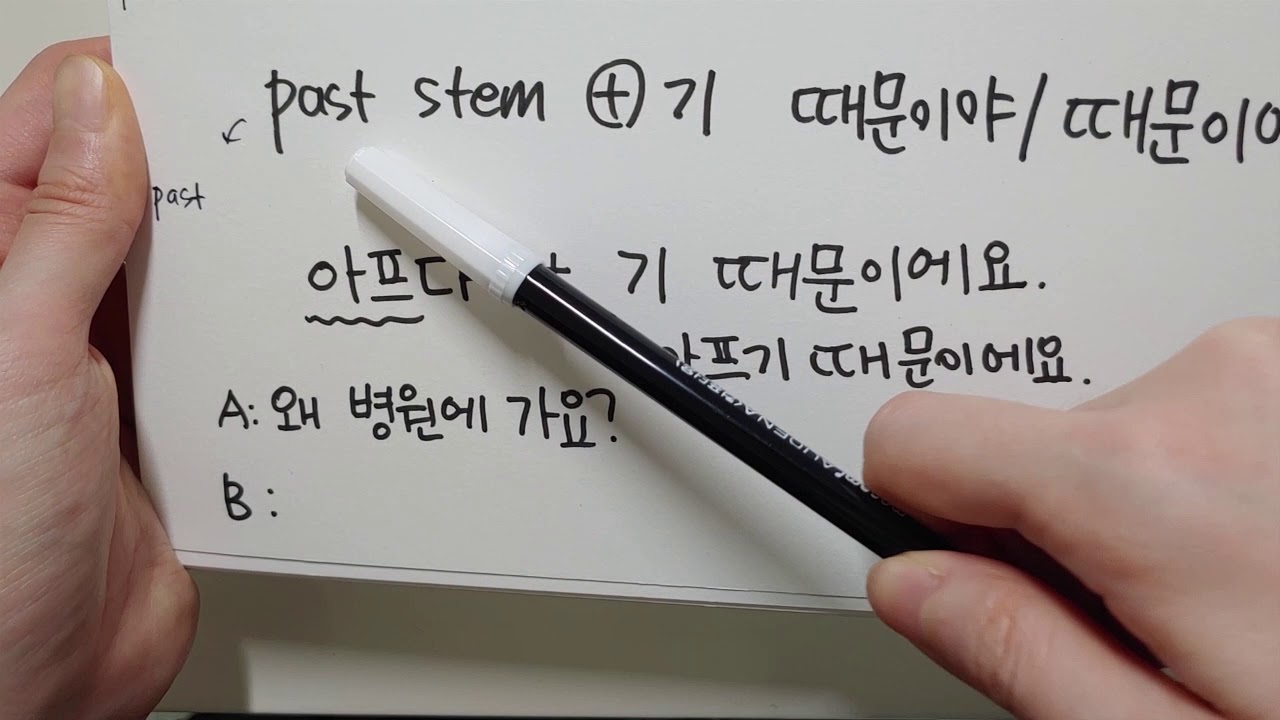 past stem ⊕ 기 때문이야 / 때문이
past
아프다 기 때문이에요.
아프기 때문이에요.
A: 왜 병원에 가요?
B :